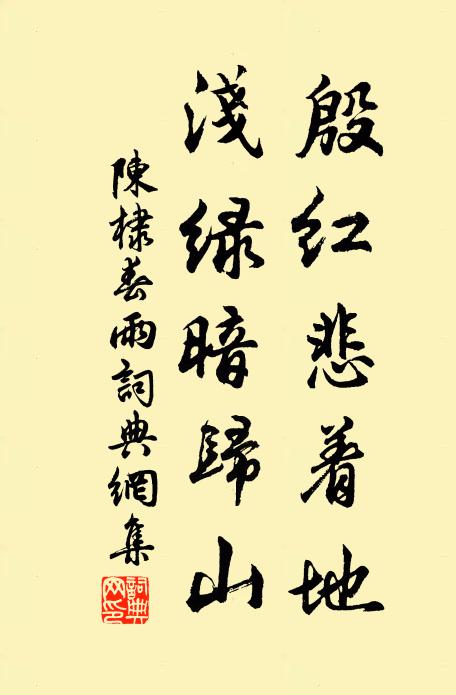 殷红悲着地
淺绿暗歸山
陳棣春雨詞典網集
詞典網印